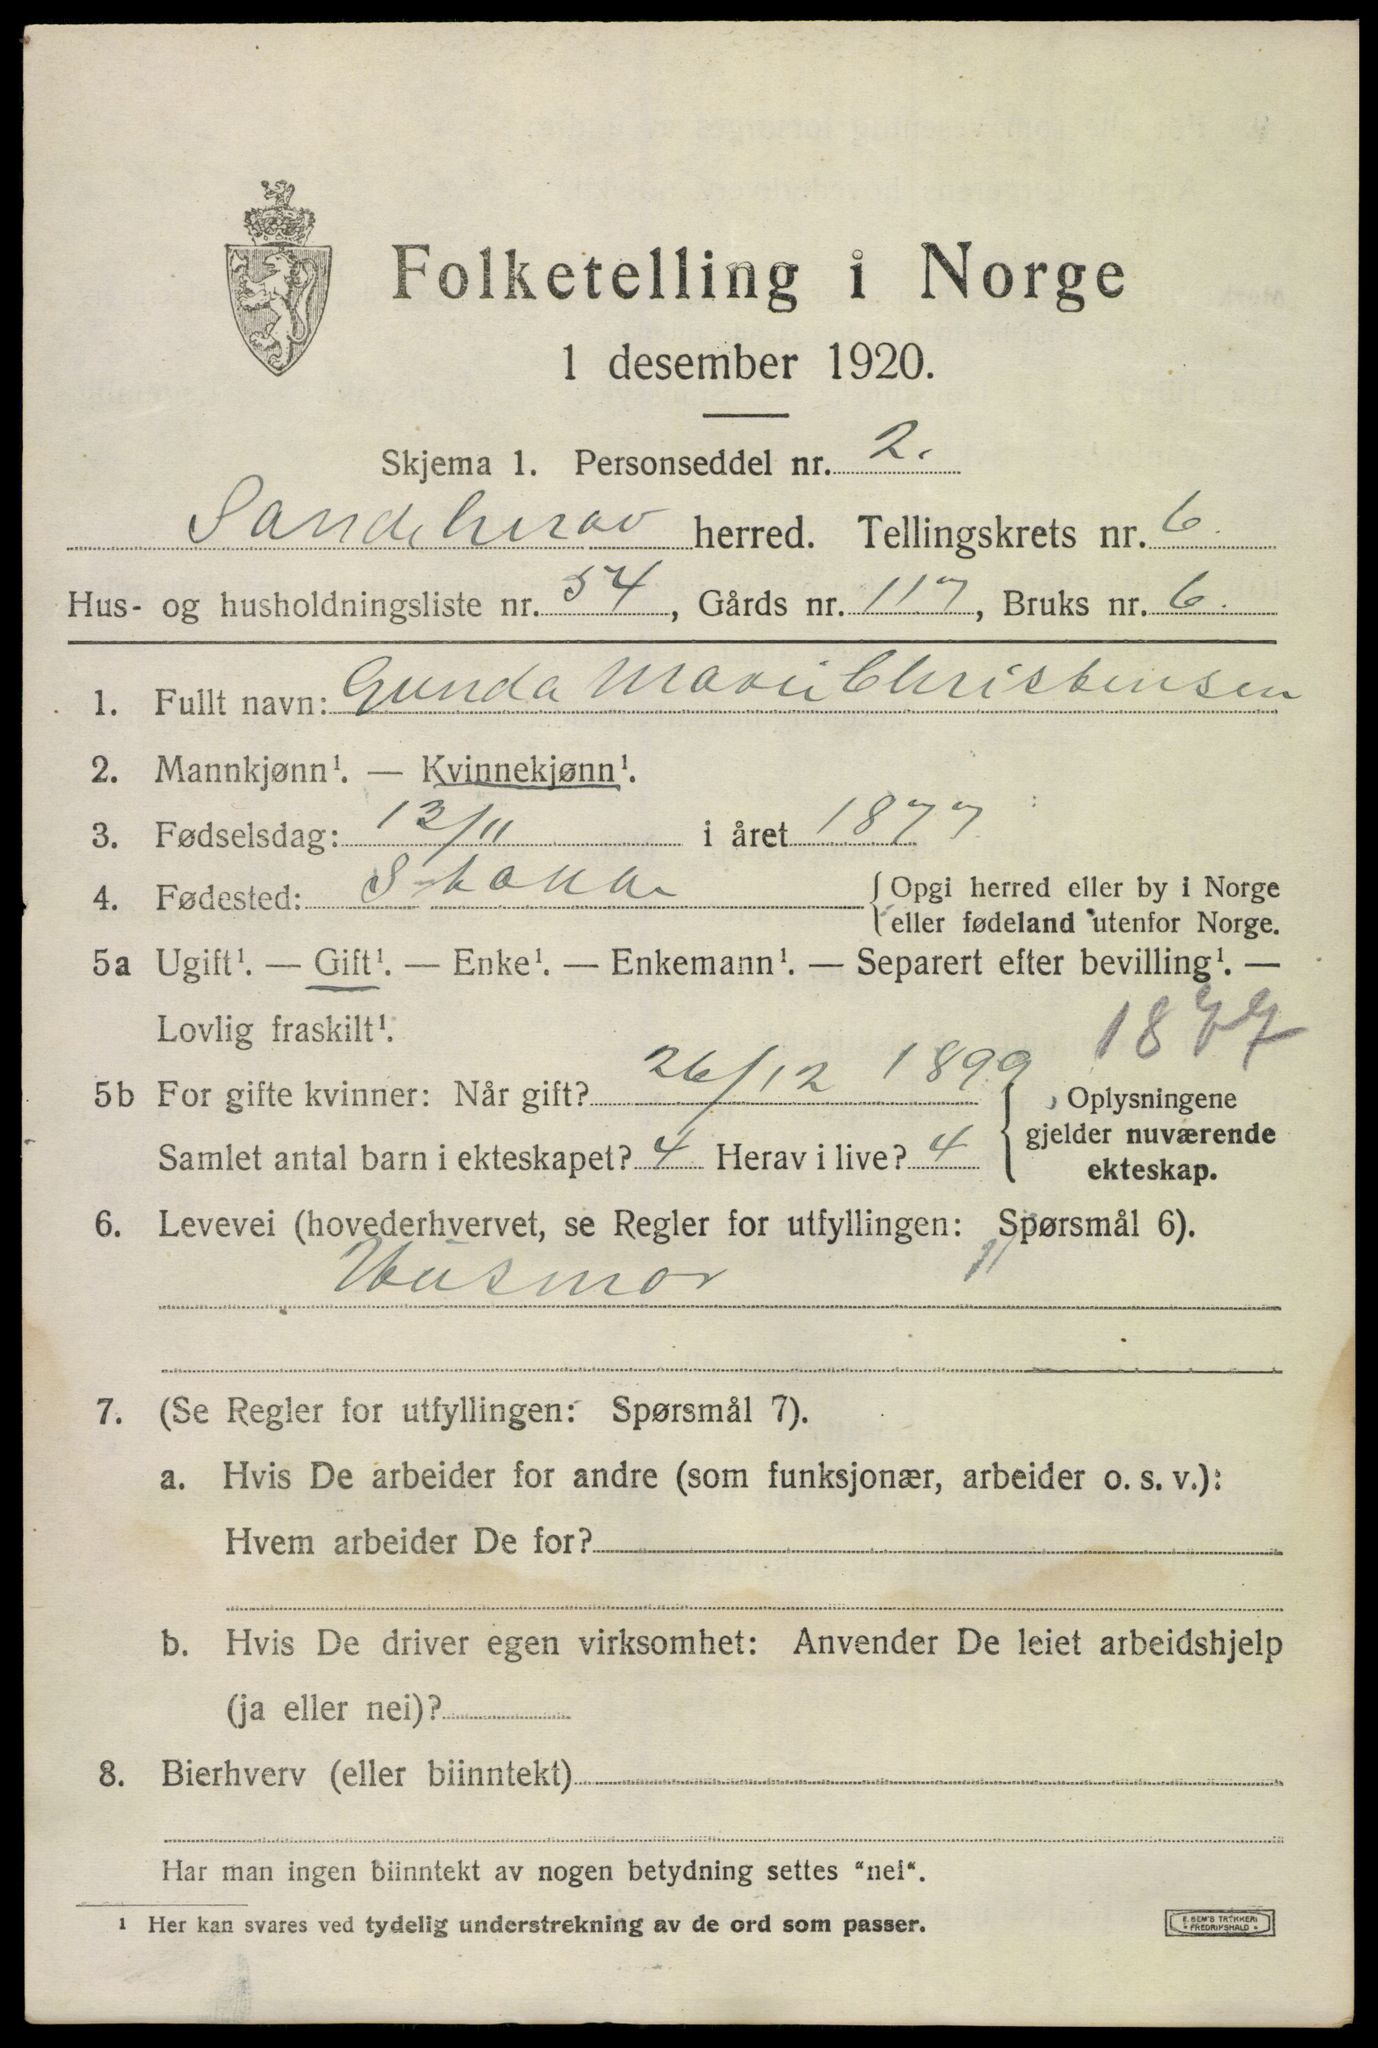 Folketelling i Norge
1 desember 1920.
Skjema 1. Personseddel nr. 2.
Sandeherav herred. Tellingskrets nr. 6.
Hus- og husholdningsliste nr. 54, Gårds nr. 117, Bruks nr. 6.
1. Fullt navn: Gunda Marie Christensen
2. Mannkjønn¹. — Kvinnekjønn¹.
3. Fødselsdag: 13/11 i året 1877
4. Fødested: Stokke {Opgi herred eller by i Norge
eller fødeland utenfor Norge.
5a Ugift¹. — Gift¹. — Enke¹. — Enkemann¹. — Separert efter bevilling¹. —
Lovlig fraskilt¹.
1877
5b For gifte kvinner: Når gift? 26/12 1899 { Oplysningene
gjelder nuværende
Samlet antal barn i ekteskapet? 4 Herav i live? 4
ekteskap.
6. Levevei (hovederhvervet, se Regler for utfyllingen: Spørsmål 6).
Husmor 11
7. (Se Regler for utfyllingen: Spørsmål 7).
a. Hvis De arbeider for andre (som funksjonær, arbeider o. s. v.):
Hvem arbeider De for?
b. Hvis De driver egen virksomhet: Anvender De leiet arbeidshjelp
(ja eller nei)?
8. Bierhverv (eller biinntekt)
Har man ingen biinntekt av nogen betydning settes "nei".
1 Her kan svares ved tydelig understrekning av de ord som passer.
E. SEM'S TRYKKERI
FREDRIKSHALD